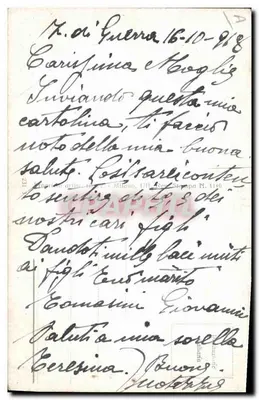 Z. di Guerra 16-10-918
Carissima Moglie
Inviando questa mia
cartolina, ti faccio
noto della mia buona
salute. Così sarei conten
to sentire di te e dei
nostri cari figli
Dandoti mille baci uniti
ai figli marito
Tomasini Giovanni
Saluti a mia sorella
Teresina. Buone